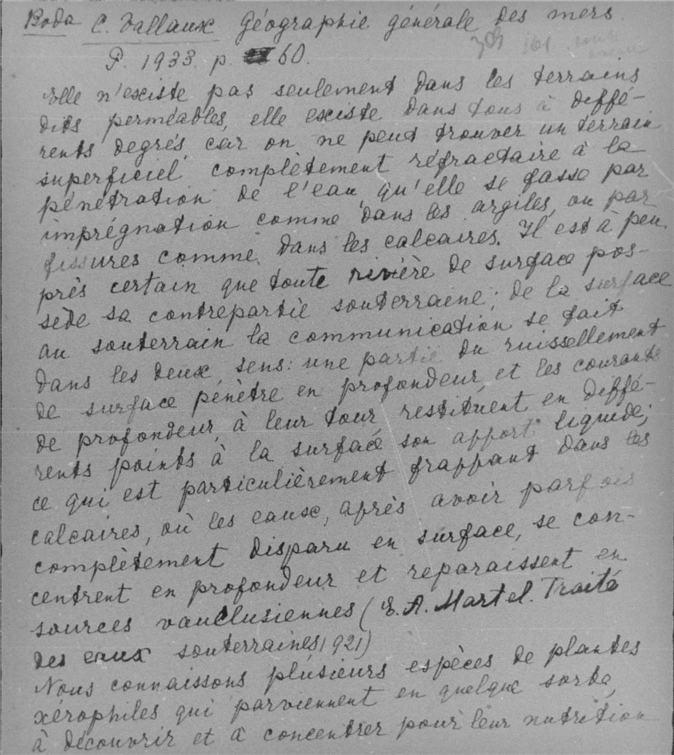 Вода C. Vallaux Géographie générale des mers.
P. 1933 p. 60.
Elle n'existe pas seulement dans les terrains
dits perméables, elle existe dans tous à diffé-
rents degrés car on ne peut trouver un terrain
superficiel complètement réfractaire à la
pénétration de l'eau qu'elle se fasse par
imprégnation comme dans les argiles, ou par
fissures comme dans les calcaires. Il est à peu
près certain que toute rivière de surface pos-
sède sa contrepartie souterraine; de la surface
au souterrain la communication se fait
dans les deux sens: une partie du ruissellement
de surface pénètre en profondeur, et les courants
de profondeur, à leur tour restituent en diffé-
rents points à la surface son apport liquide;
ce qui est particulièrement frappant dans les
calcaires, où les eaux, après avoir parfois
complètement disparu en surface, se con-
centrent en profondeur et reparaissent en
sources vauclusiennes (E. A. Martel. Traité
des eaux souterraines 1921)
Nous connaissons plusieurs espèces de plantes
xérophiles qui parviennent en quelque sorte,
à découvrir et à concentrer pour leur nutrition